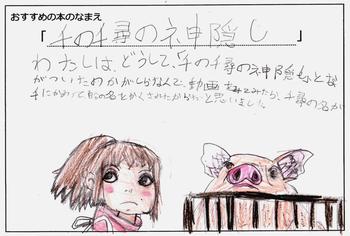 おすすめの本のなまえ
「千の千尋の神隠し」
わたしは、どうして、千の千尋の神隠しとな
がついたのか がしらなんで、動画をみてみたら、千尋の名が
千にかわって 名をかくされたから と思いました